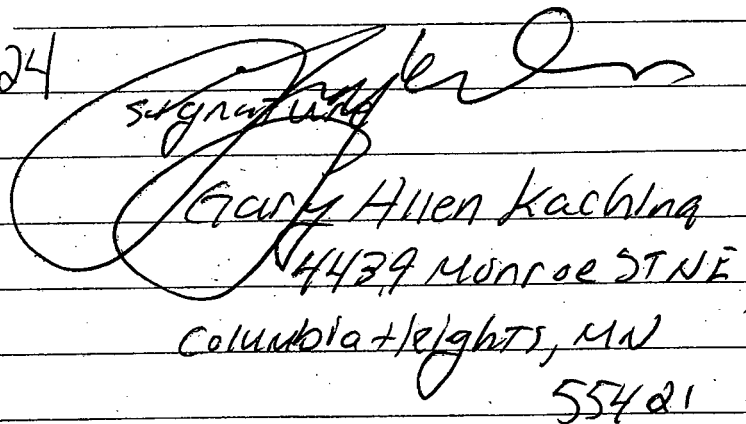 24
signature
Gary Allen Kachina
4439 Monroe ST NE
Columbia Heights, MN
55421